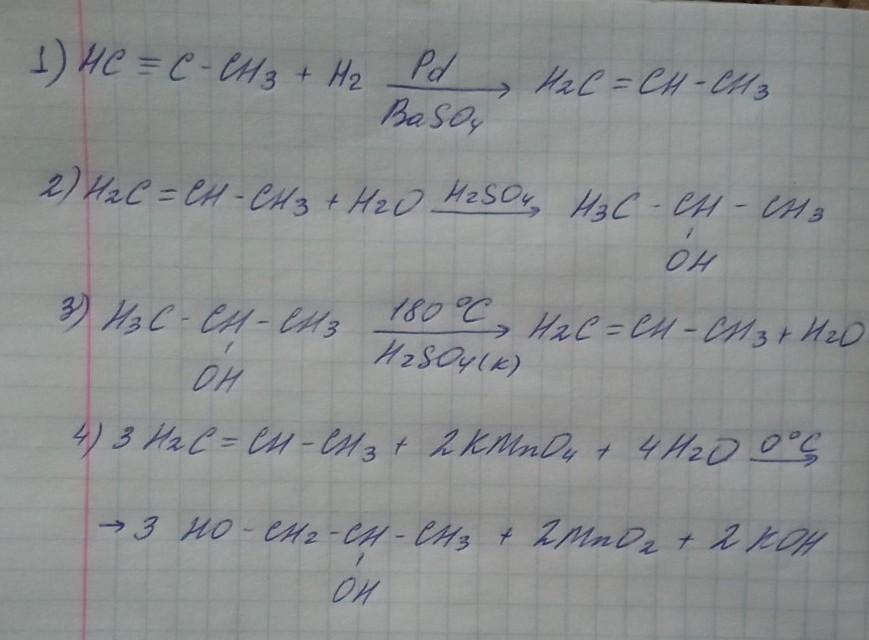 1) HC ≡ C - CH3 + H2 Pd/BaSO4 → H2C = CH - CH3
2) H2C = CH - CH3 + H2O H2SO4 → H3C - CH - CH3
OH
3) H3C - CH - CH3 180°C/H2SO4(к) → H2C = CH - CH3 + H2O
OH
4) 3 H2C = CH - CH3 + 2KMnO4 + 4H2O 0°C →
→ 3 HO - CH2 - CH - CH3 + 2MnO2 + 2KOH
OH